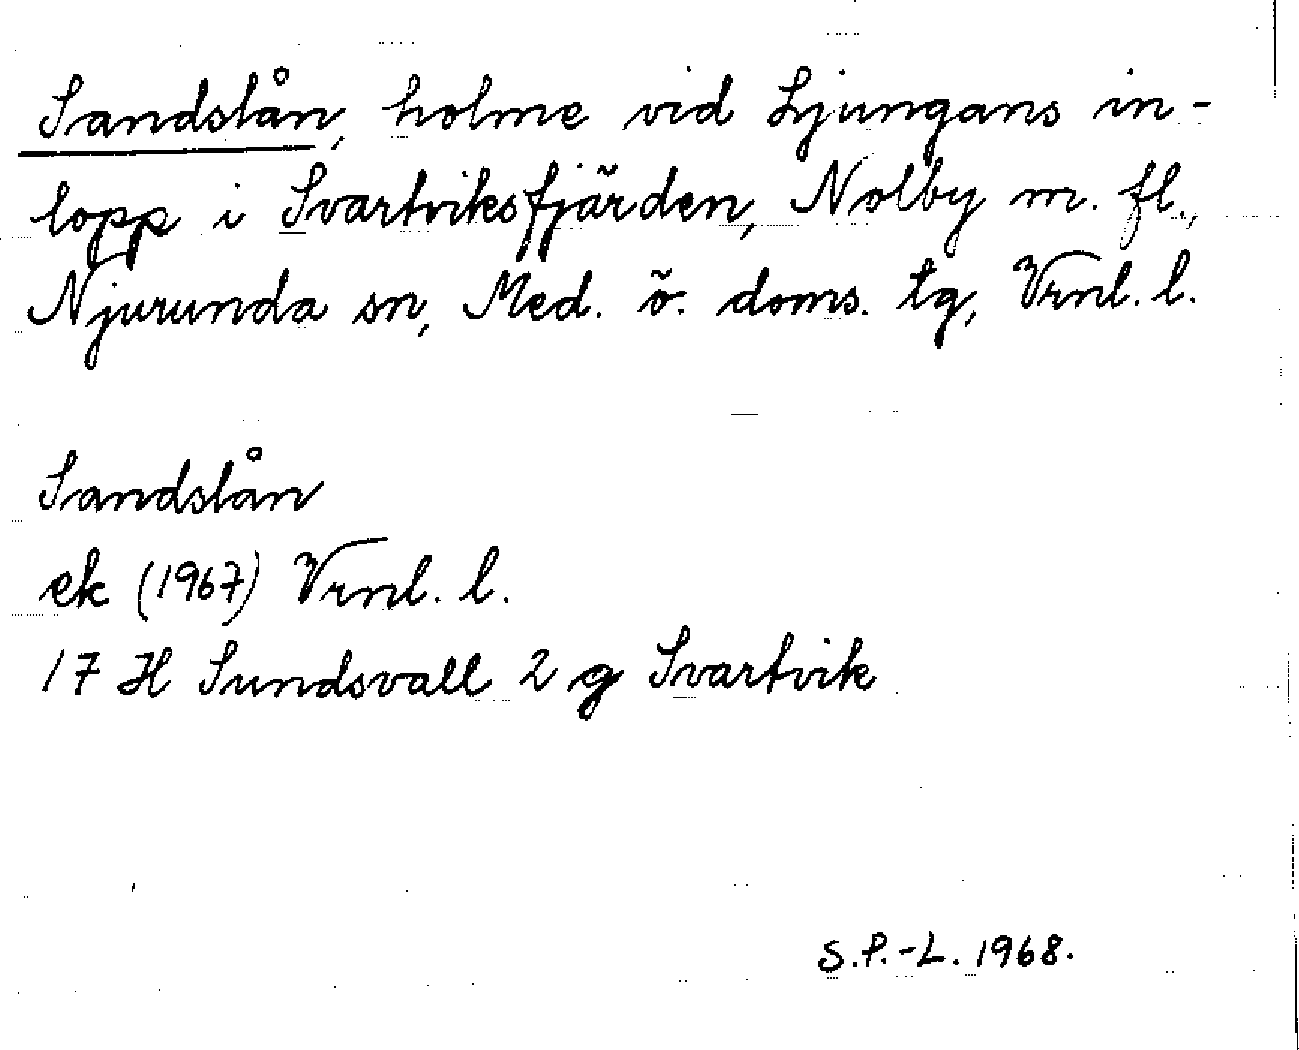 Sandslån, holme vid Ljungans in-
lopp i Svartviksfjärden, Nolby m. fl.,
Njurunda sn, Med. ö. doms. tg, Vrnl. l.
Sandslån
ek (1967) Vrnl. l.
17 H Sundsvall 2 g Svartvik
S.P.-L. 1968.